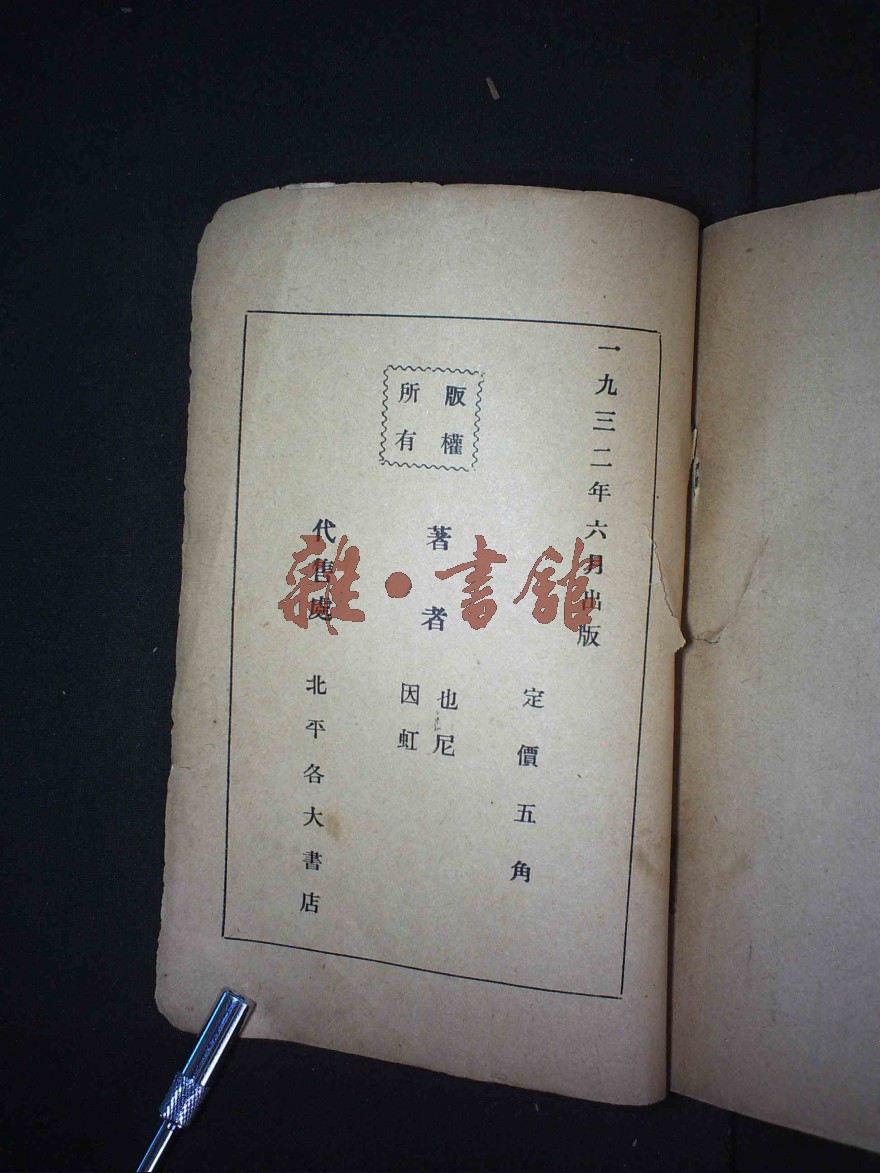 一九三二年六月出版
定價五角
版權
所有
著者
也尼
因虹
代售處
北平各大書店
雜·書館